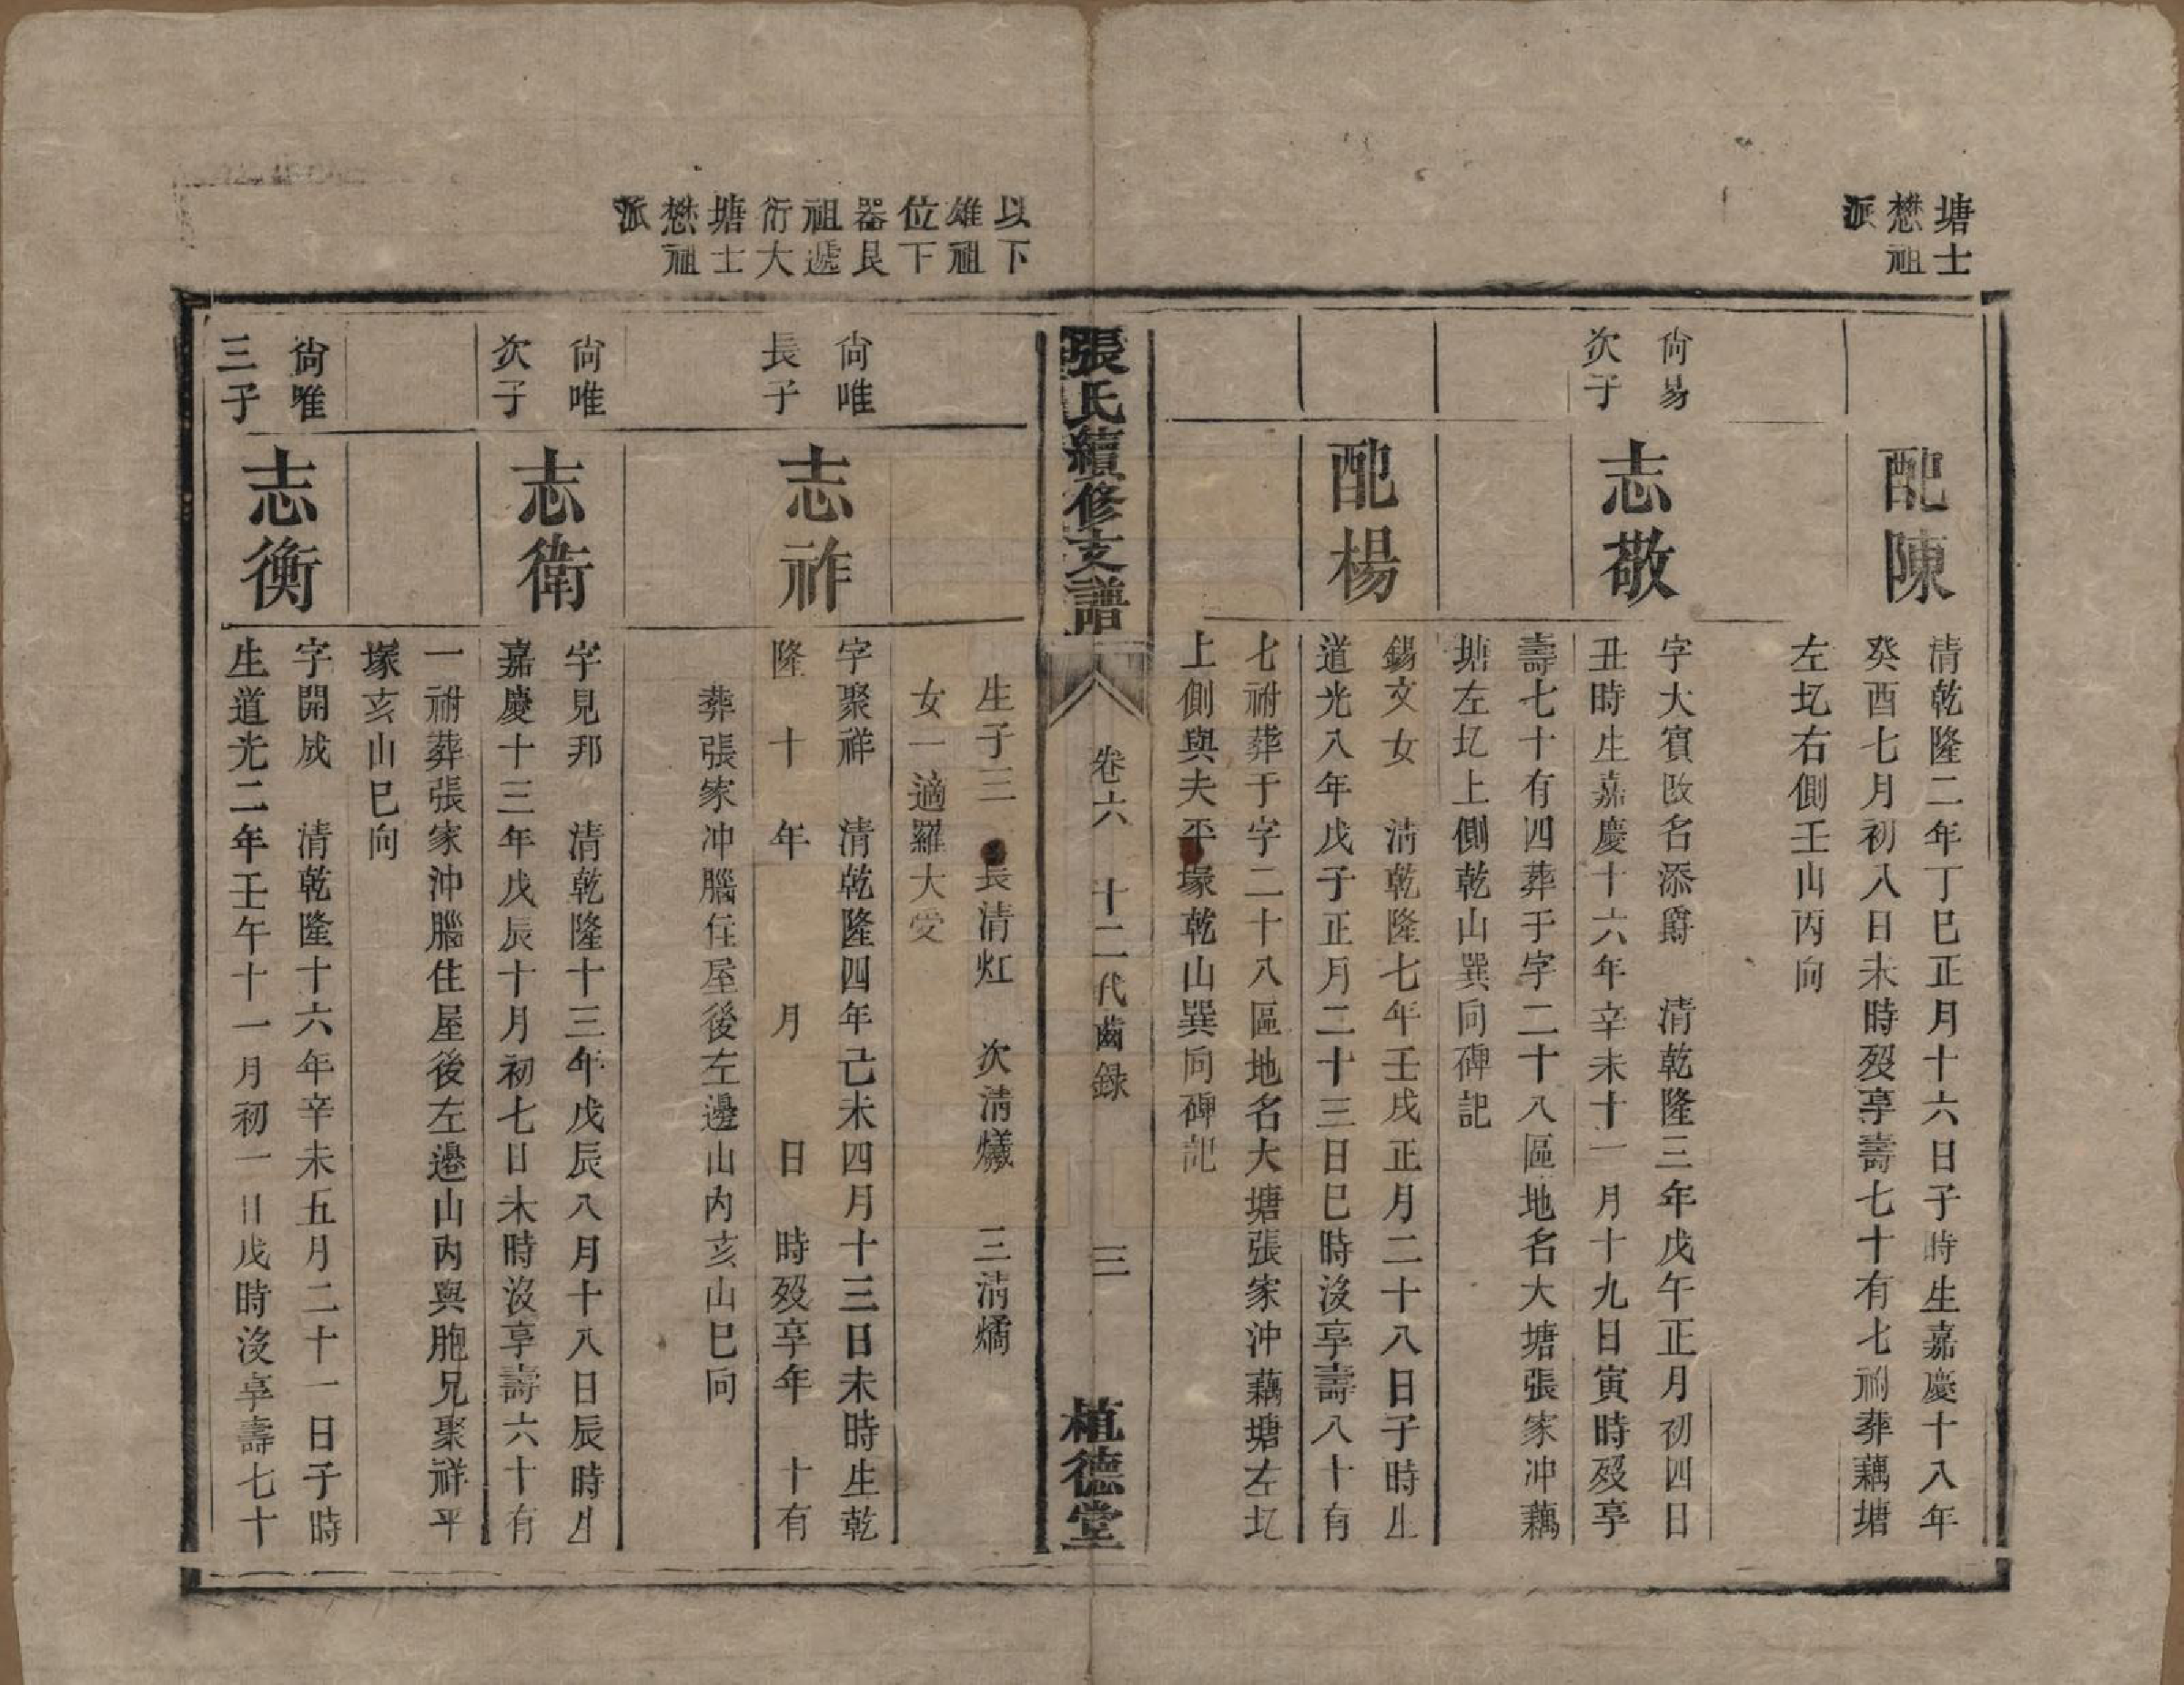 塘士
懋祖
派
配陳
清乾隆二年丁巳正月十六日子時生嘉慶十八年
癸酉七月初八日未時歿享壽七十有七祔葬藕塘
左圠右側壬山丙向
尙易
次子
志敬
字大賓改名添爵　清乾隆三年戊午正月初四日
丑時生嘉慶十六年辛未十一月十九日寅時歿享
壽七十有四葬于字二十八區地名大塘張家冲藕
塘左圠上側乾山巽向碑記
配楊
錫文女　清乾隆七年壬戌正月二十八日子時生
道光八年戊子正月二十三日巳時沒享壽八十有
七祔葬于字二十八區地名大塘張家沖藕塘左圠
上側與夫平塚乾山巽向碑記
張氏續修支譜
卷六　十二代齒録　三
植德堂
以下
雄祖
位下
器艮
祖遞
衍大
塘士
懋祖
派
生子三　長清灴　次清爔　三清燏
女一適羅大受
尙唯
長子
志祚
字聚祥　清乾隆四年己未四月十三日未時生乾
隆　十　年　　月　　日　時歿享年　十有
葬張家冲腦住屋後左邊山內亥山巳向
尙唯
次子
志衛
字見邦　清乾隆十三年戊辰八月十八日辰時生
嘉慶十三年戊辰十月初七日未時沒享壽六十有
一祔葬張家沖腦住屋後左邊山內與胞兄聚祥平
塚亥山巳向
尙唯
三子
志衡
字開成　清乾隆十六年辛未五月二十一日子時
生道光二年壬午十一月初一日戌時沒享壽七十